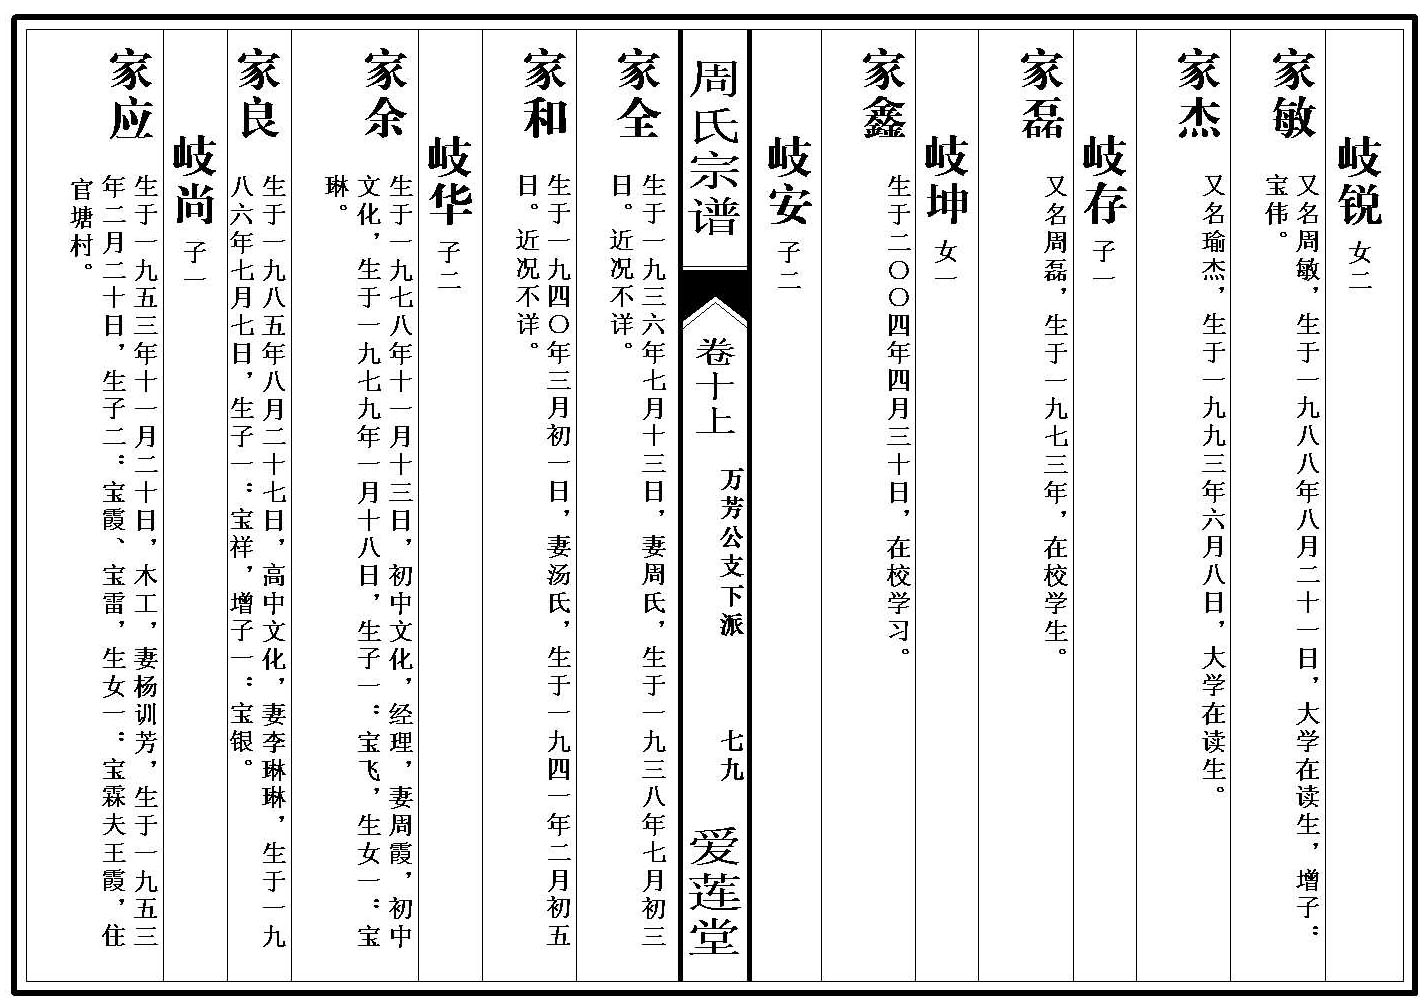 岐锐 女二
家敏
又名周敏，生于一九八八年八月二十一日，大学在读生，增子：
宝伟。
家杰
又名瑜杰，生于一九九三年六月八日，大学在读生。
岐存 子一
家磊
又名周磊，生于一九七三年，在校学生。
岐坤 女一
家鑫
生于二〇〇四年四月三十日，在校学习。
岐安 子二
周氏宗谱
卷十上
万芳公支下派
七九
爱莲堂
家全
生于一九三六年七月十三日，妻周氏，生于一九三八年七月初三
日。近况不详。
家和
生于一九四〇年三月初一日，妻汤氏，生于一九四一年二月初五
日。近况不详。
岐华 子二
家余
生于一九七八年十一月十三日，初中文化，经理，妻周霞，初中
文化，生于一九七九年一月十八日，生子一：宝飞，生女一：宝
琳。
家良
生于一九八五年八月二十七日，高中文化，妻李琳琳，生于一九
八六年七月七日，生子一：宝祥，增子一：宝银。
岐尚 子一
家应
生于一九五三年十一月二十日，木工，妻杨训芳，生于一九五三
年二月二十日，生子二：宝霞、宝雷，生女一：宝霖夫王霞，住
官塘村。